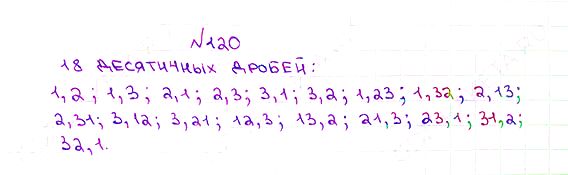 №120
18 ДЕСЯТИЧНЫХ ДРОБЕЙ:
1,2; 1,3; 2,1; 2,3; 3,1; 3,2; 1,23; 1,32; 2,13;
2,31; 3,12; 3,21; 12,3; 13,2; 21,3; 23,1; 31,2;
32,1.